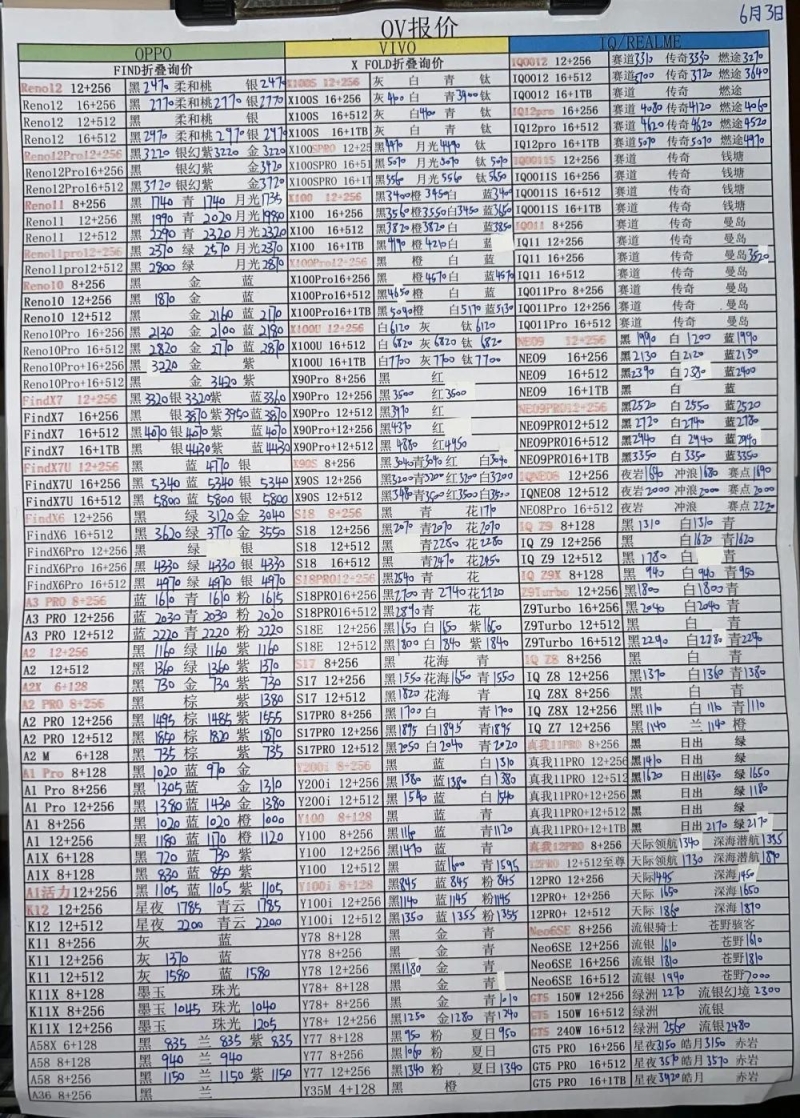 6月3日
OV报价
OPPO
FIND折叠询价
Reno12 12+256 黑2470 柔和桃 银2470
Reno12 16+256 黑2770 柔和桃2770 银2770
Reno12 12+512 黑 银
Reno12 16+512 黑2970 柔和桃2970 银2970
Reno12Pro12+256 黑3220 银幻紫3220 金3220
Reno12Pro16+256 金3420
Reno12Pro16+512 黑3720 银幻紫 金3720
Reno11 8+256 黑1740 青1740 月光1735
Reno11 12+256 黑1990 青2020 月光1980
Reno11 12+512 黑2290 青2320 月光2320
Reno11pro12+256 黑2370 绿2570 月光2370
Reno11pro12+512 黑2800 绿 月光2870
Reno10 8+256 黑 金 蓝
Reno10 12+256 黑1870 金 蓝
Reno10 12+512 金2160 蓝2170
Reno10Pro 16+256 黑2130 金2100 蓝2180
Reno10Pro 16+512 黑2820 金2770 蓝2870
Reno10Pro+16+256 黑3220 金 紫
Reno10Pro+16+512 金3420 紫
FindX7 12+256 黑3320 银3320 紫 蓝3360
FindX7 16+256 黑 银3870 紫3950 蓝3870
FindX7 16+512 黑4070 银4070 紫 蓝4070
FindX7 16+1TB 黑 银4430 紫 蓝4430
FindX7U 12+256 黑 蓝4770 银
FindX7U 16+256 黑5340 蓝5340 银5340
FindX7U 16+512 黑5800 蓝5800 银5800
FindX6 12+256 黑 绿3120 金3040
FindX6 16+512 黑3620 绿3770 金3550
FindX6Pro 12+256 黑 绿 银
FindX6Pro 16+256 黑4330 绿4330 银4330
FindX6Pro 16+512 黑4970 绿4970 银4970
A3 PRO 8+256 蓝1610 青1610 粉1615
A3 PRO 12+256 蓝2030 青2030 粉2020
A3 PRO 12+512 蓝2220 青2220 粉2220
A2 12+256 黑1160 绿1160 紫1160
A2 12+512 黑1360 绿1360 紫1370
A2X 6+128 黑730 金730 紫730
A2 PRO 8+256 黑 棕 紫1380
A2 PRO 12+256 黑1495 棕1485 紫1555
A2 PRO 12+512 黑1850 棕1820 紫1870
A2 M 6+128 黑735 棕 紫735
A1 Pro 8+128 黑1020 蓝970 金
A1 Pro 8+256 黑1305 蓝 金1310
A1 Pro 12+256 黑1380 蓝1430 金1380
A1 8+256 黑1020 蓝1020 橙1000
A1 12+256 黑1180 蓝1170 橙1120
A1X 6+128 黑720 蓝730 紫
A1X 8+128 黑830 蓝850 紫
A1活力12+256 黑1105 蓝1105 紫1105
K12 12+256 星夜1785 青云1785
K12 12+512 星夜2200 青云2200
K11 8+256 灰 蓝
K11 12+256 灰1370 蓝
K11 12+512 灰1580 蓝1580
K11X 8+128 墨玉 珠光
K11X 8+256 墨玉1045 珠光1040
K11X 12+256 墨玉 珠光1205
A58X 6+128 黑835 兰835 紫835
A58 8+128 黑940 兰940
A58 8+256 黑1150 兰1150 紫1150
A36 8+256 黑 兰
VIVO
X FOLD折叠询价
X100S 12+256 灰 白 青 钛
X100S 16+256 灰4400 白 青3900 钛
X100S 16+512 灰 白 青 钛
X100S 16+1TB 灰 白 青 钛
X100SPRO 12+256 黑4490 月光4490 钛
X100SPRO 16+512 黑5070 月光5070 钛5070
X100SPRO 16+1T 黑5560 月光5560 钛5650
X100 12+256 黑3400 橙3450 白 蓝3400
X100 16+256 黑3560 橙3550 白3450 蓝3650
X100 16+512 黑3820 橙3820 白 蓝3850
X100 16+1TB 黑4190 橙4210 白 蓝
X100Pro12+256 黑 橙 白 蓝
X100Pro16+256 黑 橙4670 白 蓝4670
X100Pro16+512 黑4650 橙 白 蓝
X100Pro16+1TB 黑5090 橙 白5170 蓝5130
X100U 12+256 白6120 灰 钛6120
X100U 16+512 白6820 灰6820 钛6820
X100U 16+1TB 白7700 灰7700 钛7700
X90Pro 8+256 黑 红
X90Pro 12+256 黑3500 红3500
X90Pro 12+512 黑3970 红
X90Pro+12+256 黑4370 红
X90Pro+12+512 黑4880 红4950
X90S 8+256 黑3040 青3090 红 白3040
X90S 12+256 黑3200 青3200 红3200 白3200
X90S 12+512 黑3480 青3500 红3500 白3500
S18 8+256 黑 青 花1710
S18 12+256 黑2070 青2070 花2070
S18 12+512 黑 青2280 花2280
S18 16+512 黑 青2470 花2450
S18PRO12+256 黑2540 青 花
S18PRO16+256 黑2700 青2740 花2720
S18PRO16+512 黑2890 青 花
S18E 12+256 黑1650 白1650 紫1650
S18E 12+512 黑1800 白1840 紫1840
S17 8+256 黑 花海 青
S17 12+256 黑1550 花海1650 青1550
S17 12+512 黑1820 花海 青
S17PRO 8+256 黑1700 白 青1700
S17PRO 12+256 黑1895 白1895 青1895
S17PRO 12+512 黑2050 白2040 青2020
Y200i 8+256 黑 蓝 白1310
Y200i 12+256 黑1380 蓝1380 白1380
Y200i 12+512 黑1540 蓝 白1540
Y100 8+128 黑 蓝 青
Y100 8+256 黑1160 蓝 青1120
Y100 12+256 黑1470 蓝 青
Y100 12+512 黑 蓝1600 青1595
Y100i 8+128 黑845 蓝845 粉845
Y100i 12+256 黑1140 蓝1145 粉1145
Y100i 12+512 黑1350 蓝1355 粉1355
Y78 8+128 黑 金 青
Y78 8+256 黑 金 青
Y78 12+256 黑1180 金 青
Y78+ 8+128 黑 金 青
Y78+ 8+256 黑 金 青1010
Y78+ 12+256 黑1250 金1280 青1240
Y77 8+128 黑950 粉 夏日950
Y77 8+256 黑1060 粉 夏日
Y77 12+256 黑1340 粉 夏日1340
Y35M 4+128 黑 橙
IQ/REALME
IQOO12 12+256 赛道3310 传奇3330 燃途3270
IQOO12 16+512 赛道3700 传奇3720 燃途3640
IQOO12 16+1TB 赛道 传奇 燃途
IQ12pro 16+256 赛道4080 传奇4120 燃途4060
IQ12pro 16+512 赛道4620 传奇4620 燃途4520
IQ12pro 16+1TB 赛道5070 传奇5070 燃途4970
IQOO11S 12+256 赛道 传奇 钱塘
IQOO11S 16+256 赛道 传奇 钱塘
IQOO11S 16+512 赛道 传奇 钱塘
IQOO11S 16+1TB 赛道 传奇 钱塘
IQOO11 8+256 赛道 传奇 曼岛
IQ11 12+256 赛道 传奇 曼岛
IQ11 16+256 赛道 传奇 曼岛3520
IQ11 16+512 赛道 传奇 曼岛
IQO11Pro 8+256 赛道 传奇 曼岛
IQO11Pro 12+256 赛道 传奇 曼岛
IQO11Pro 16+512 赛道 传奇 曼岛
NEO9 12+256 黑1990 白1200 蓝1990
NEO9 16+256 黑2130 白2120 蓝2130
NEO9 16+512 黑2390 白2380 蓝2400
NEO9 16+1TB 黑 白 蓝
NEO9PRO12+256 黑2520 白2550 蓝2520
NEO9PRO12+512 黑2720 白2740 蓝2780
NEO9PRO16+512 黑2940 白2940 蓝2940
NEO9PRO16+1TB 黑3350 白3350 蓝3350
IQNEO8 12+256 夜岩1690 冲浪1680 赛点1690
IQNEO8 12+512 夜岩2000 冲浪2000 赛点2000
NEO8Pro 16+256 夜岩 冲浪 赛点2220
IQ Z9 8+128 黑1310 白1310 青
IQ Z9 12+256 黑 白1620 青1620
IQ Z9 12+512 黑1780 白 青
IQ Z9X 8+128 黑940 白940 青950
Z9Turbo 12+256 黑1800 白1800 青
Z9Turbo 16+256 黑2040 白2040 青
Z9Turbo 16+512 黑2290 白2280 青2290
IQ Z8 8+256 黑 白 青
IQ Z8 12+256 黑1370 白1360 青1380
IQ Z8X 8+256 黑 白 青
IQ Z8X 12+256 黑1110 白1110 青1110
IQ Z7 12+256 黑1140 兰1140 橙
真我11PRO 8+256 黑 日出 绿
真我11PRO 12+256 黑1410 日出 绿
真我11PRO 12+512 黑1620 日出1630 绿1650
真我11PRO+12+256 黑 日出 绿1180
真我11PRO+12+512 黑 日出 绿
真我11PRO+12+1TB 黑 日出2170 绿2170
真我12PRO 8+256 天际领航1340 深海潜航1355
12PRO 12+512至尊 天际领航1730 深海潜航1840
12PRO 12+256 天际1445 深海1450
12PRO+ 12+256 天际1650 深海1650
12PRO+ 12+512 天际1860 深海1870
Neo6SE 8+256 流银骑士 苍野骇客
Neo6SE 12+256 流银1610 苍野1610
Neo6SE 12+512 流银1810 苍野1810
Neo6SE 16+512 流银1990 苍野2000
GT5 150W 12+256 绿洲2270 流银幻境2300
GT5 150W 16+512 绿洲 流银
GT5 240W 16+512 绿洲2560 流银2480
GT5 PRO 16+256 星夜3150 皓月3150 赤岩
GT5 PRO 16+512 星夜3570 皓月3570 赤岩
GT5 PRO 16+1TB 星夜3920 皓月 赤岩